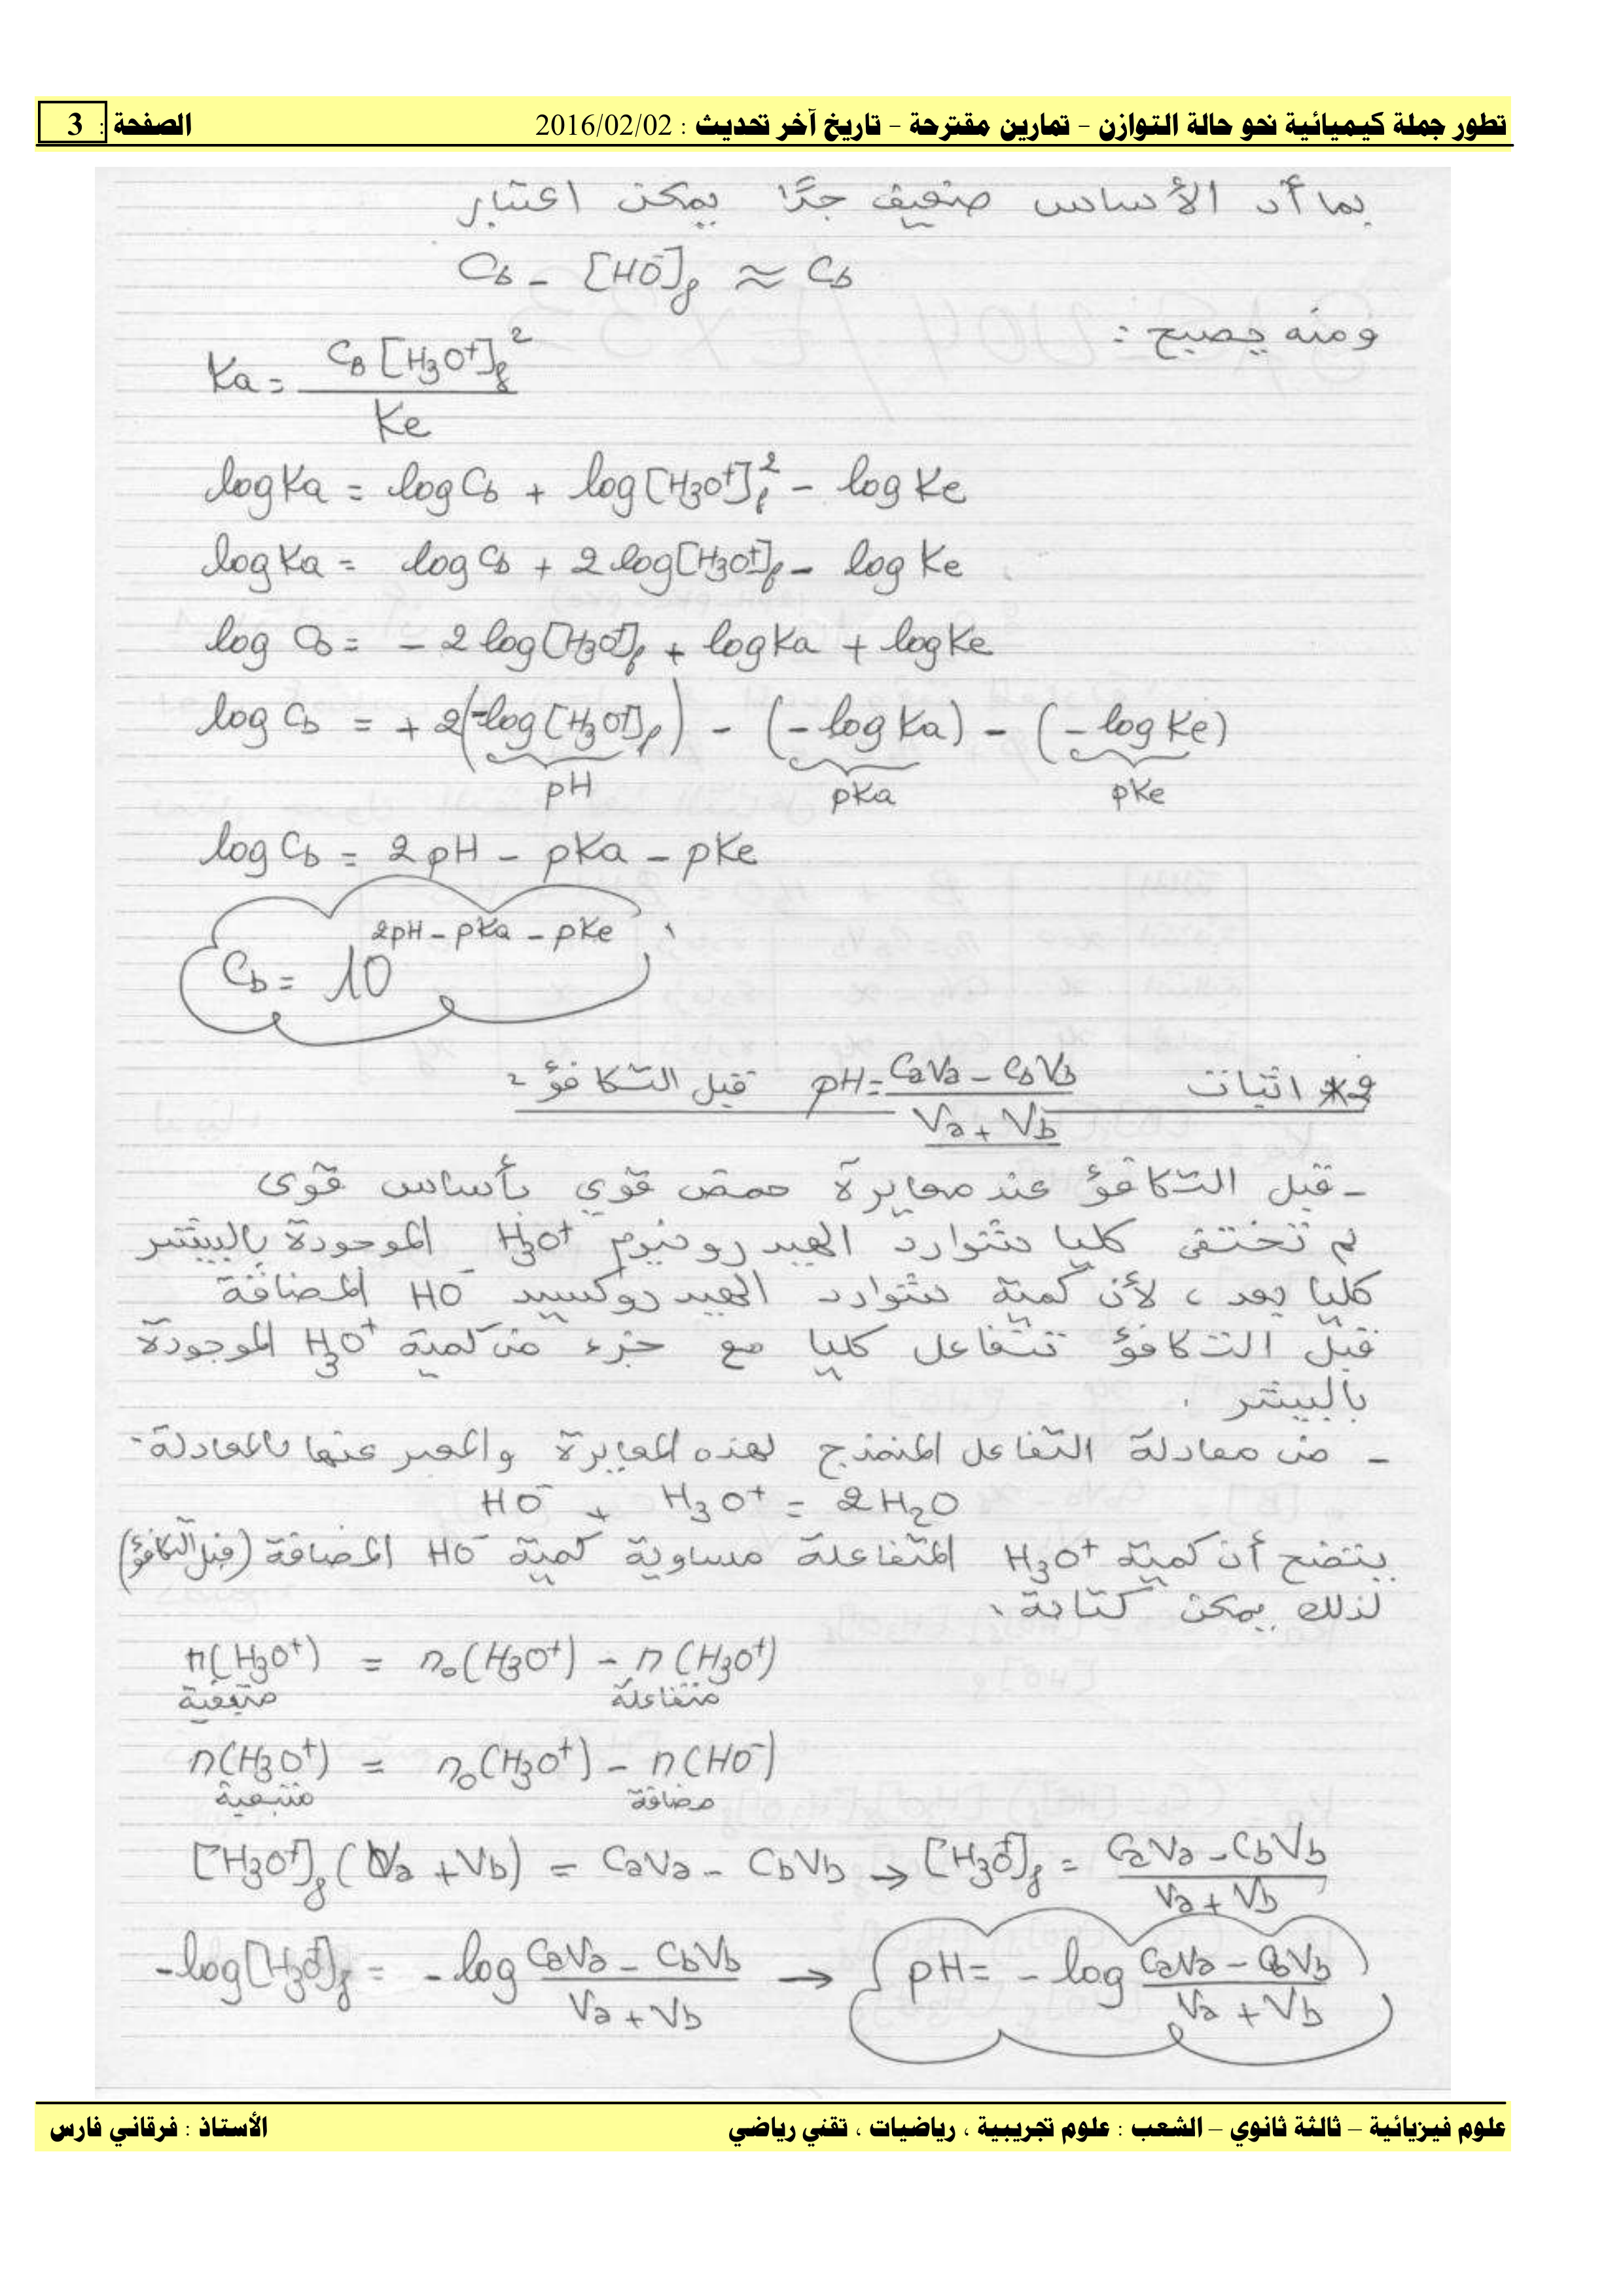 تطور جملة كيميائية نحو حالة التوازن – تمارين مقترحة – تاريخ آخر تحديث : 2016/02/02 الصفحة : 3
بما أن الأساس ضعيف جدًا يمكن اعتبار
Cb - [HO⁻]f ≈ Cb
ومنه يصبح :
Ka = CB [H3O⁺]f² / Ke
log Ka = log Cb + log [H3O⁺]f² - log Ke
log Ka = log Cb + 2 log [H3O⁺]f - log Ke
log Cb = - 2 log [H3O⁺]f + log Ka + log Ke
log Cb = + 2(-log [H3O⁺]f) - (- log Ka) - (- log Ke)
pH pKa pKe
log Cb = 2 pH - pKa - pKe
Cb = 10^(2pH - pKa - pKe)
2* اثبات pH = (CaVa - CbVb) / (Va + Vb) قبل التكافؤ :
- قبل التكافؤ عند معايرة حمض قوي بأساس قوى
لم تختفى كليا شوارد الهيدرونيوم H3O⁺ الموجودة بالبيشر
كليا بعد ، لأن كمية شوارد الهيدروكسيد HO⁻ المضافة
قبل التكافؤ تتفاعل كليا مع جزء من كمية H3O⁺ الموجودة
بالبيشر .
- من معادلة التفاعل المنمذج لهذه المعايرة والمعبر عنها بالمعادلة:
HO⁻ + H3O⁺ = 2H2O
يتضح أن كمية H3O⁺ المتفاعلة مساوية كمية HO⁻ المضافة (قبل التكافؤ)
لذلك يمكن كتابة :
n(H3O⁺) = n0(H3O⁺) - n(H3O⁺)
متبقية متفاعلة
n(H3O⁺) = n0(H3O⁺) - n(HO⁻)
متبقية مضافة
[H3O⁺]f (Va + Vb) = CaVa - CbVb → [H3O⁺]f = (CaVa - CbVb) / (Va + Vb)
-log [H3O⁺]f = - log (CaVa - CbVb) / (Va + Vb) → pH = - log (CaVa - CbVb) / (Va + Vb)
علوم فيزيائية – ثالثة ثانوي – الشعب : علوم تجريبية ، رياضيات ، تقني رياضي الأستاذ : فرقاني فارس